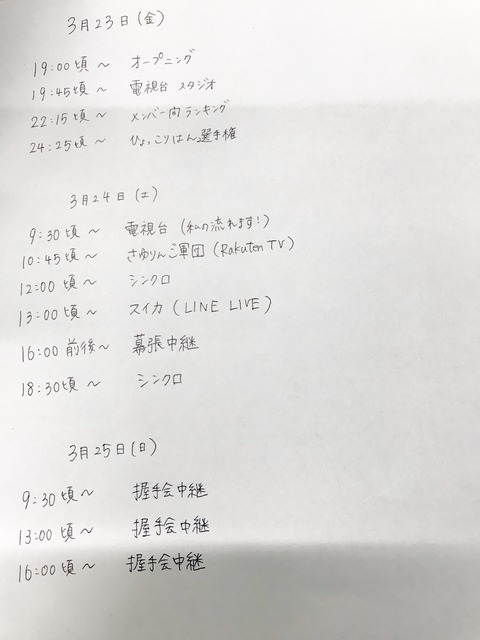 3月23日(金)
19:00頃〜 オープニング
19:45頃〜 電視台 スタジオ
22:15頃〜 メンバー内ランキング
24:25頃〜 ひょっこりはん選手権
3月24日(土)
9:30頃〜 電視台(私の流れます!)
10:45頃〜 さゆりんご軍団(Rakuten TV)
12:00頃〜 シンクロ
13:00頃〜 スイカ(LINE LIVE)
16:00前後〜 幕張中継
18:30頃〜 シンクロ
3月25日(日)
9:30頃〜 握手会中継
13:00頃〜 握手会中継
16:00頃〜 握手会中継